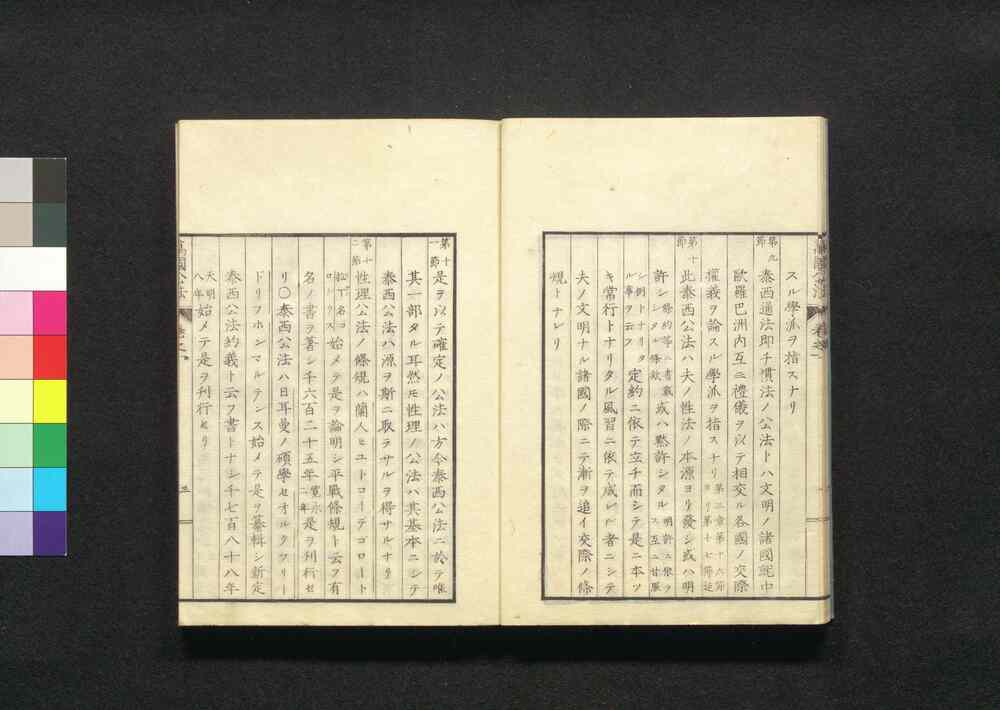 スル學派ヲ指スナリ
第九節
泰西通法即チ慣法ノ公法トハ文明ノ諸國就中
歐羅巴洲內互ニ禮儀ヲ以テ相交ル各國ノ交際
權義ヲ論スル學派ヲ指スナリ 第二章第十六節ヨリ第十七節迄
第十節
此泰西公法ハ夫ノ性法ノ本源ヨリ發シ或ハ明
許シ 條約等ニ書載シタル條款 或ハ默許シタル 明許ニ泉ラス互ニ甘服
シ例トナリタル事ヲ云フ 定約ニ依テ立チ而シテ是ニ本ツ
キ常行トナリタル風習ニ依テ成レル者ニシテ
夫ノ文明ナル諸國ノ際ニテ漸ヲ追イ交際ノ條
規トナレリ
萬國公法
卷之一
第十一節
是ヲ以テ確定ノ公法ハ方今泰西公法ニ於テ唯
其一部タル耳然モ性理ノ公法ハ其基本ニシテ
泰西公法ハ源ヲ斯ニ取テサルヲ得サルナリ
第十二節
性理公法ノ條規ハ蘭人ヒユトコーデゴロート
名コロトウス 始メテ是ヲ論明シ平戰條規ト云フ有
名ノ書ヲ著シ千六百二十五年 寬永二年 是ヲ刊行セ
リ〇泰西公法ハ日耳曼ノ碩學セオルクフリー
ドリフホンマルテンス始メテ是ヲ纂輯シ新定
泰西公法約義ト云フ書トナシ千七百八十八年
天明八年 始メテ是ヲ刊行セリ
萬國公法
卷之一
三